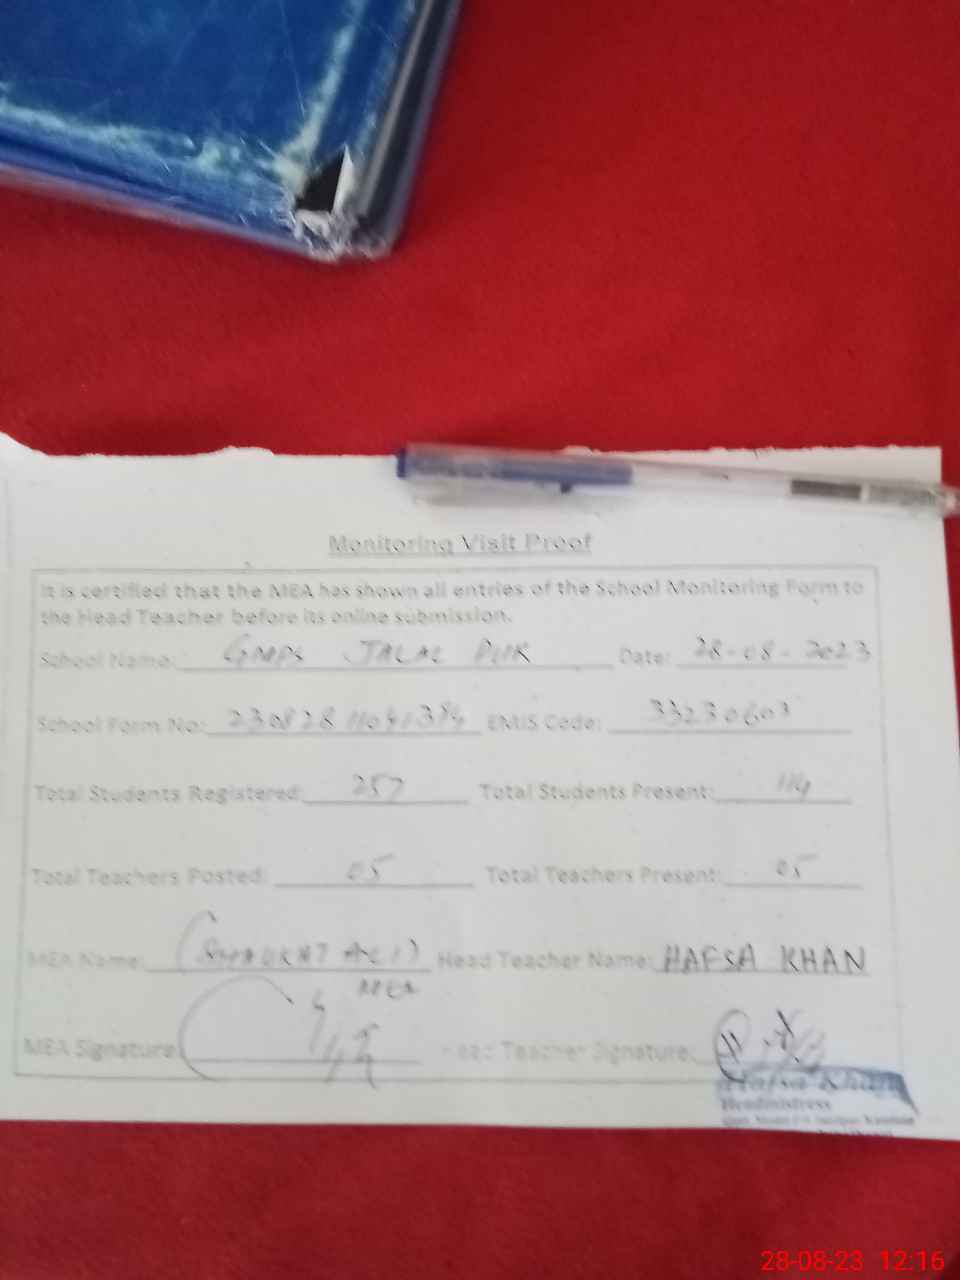 Monitoring Visit Proof
It is certified that the MEA has shown all entries of the School Monitoring Form to
the Head Teacher before its online submission.
School Name: GMPS JALAL PUR Date: 28-08-2023
School Form No: EMIS Code: 33230603
Total Students Registered: 257 Total Students Present: 114
Total Teachers Posted: 05 Total Teachers Present: 05
MEA Name: (SHAUKAT ALI) Head Teacher Name: HAFSA KHAN
MEA
MEA Signature: Head Teacher Signature:
Hafsa Khan
Headmistress
28-08-23 12:16